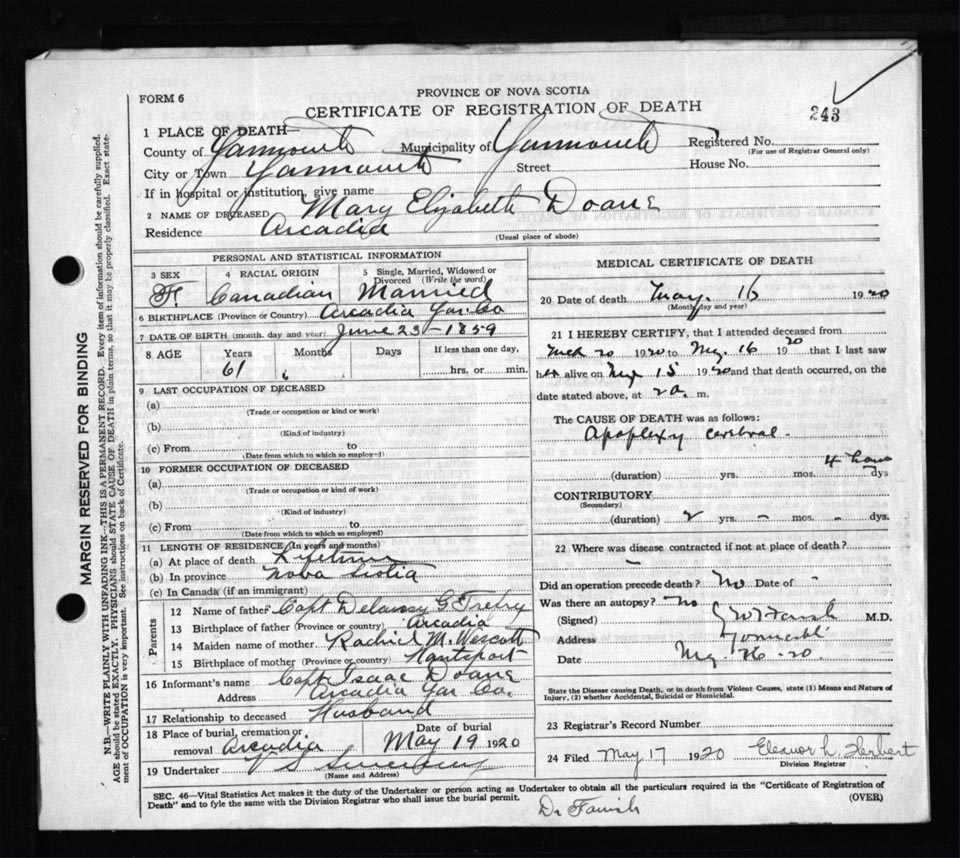 PROVINCE OF NOVA SCOTIA
FORM 6
CERTIFICATE OF REGISTRATION OF DEATH
243
1 PLACE OF DEATH—
County of Yarmouth Municipality of Yarmouth Registered No.
(For use of Registrar General only)
City or Town Yarmouth Street House No.
If in hospital or institution, give name
2 NAME OF DECEASED Mary Elizabeth Doane
Residence Arcadia
(Usual place of abode)
PERSONAL AND STATISTICAL INFORMATION
3 SEX 4 RACIAL ORIGIN 5 Single, Married, Widowed or Divorced (Write the word)
F. Canadian Married
6 BIRTHPLACE (Province or Country) Arcadia Yar. Co
7 DATE OF BIRTH (month, day and year) June 23-1859
8 AGE Years Months Days If less than one day,
61 hrs. or min.
9 LAST OCCUPATION OF DECEASED
(a)
(Trade or occupation or kind or work)
(b)
(Kind of industry)
(c) From to
(Date from which to which so employed)
10 FORMER OCCUPATION OF DECEASED
(a)
(Trade or occupation or kind of work)
(b)
(Kind of industry)
(c) From to
(Date from which to which so employed)
11 LENGTH OF RESIDENCE (In years and months)
(a) At place of death Lifetime
(b) In province Nova Scotia
(c) In Canada (if an immigrant)
Parents
12 Name of father Capt Delancy G Trefry
13 Birthplace of father (Province or country) Arcadia
14 Maiden name of mother Rachiel M. Wescott
15 Birthplace of mother (Province or country) Hantsport
16 Informant's name Capt Isaac Doane
Address Arcadia Yar Co.
17 Relationship to deceased Husband
18 Place of burial, cremation or removal Arcadia Date of burial May 19 1920
19 Undertaker V S
(Name and Address)
MEDICAL CERTIFICATE OF DEATH
20 Date of death May. 16 1920
(Month, day and year)
21 I HEREBY CERTIFY, that I attended deceased from
20 1920 to My. 16 1920 that I last saw
her alive on My 15 1920 and that death occurred, on the
date stated above, at 2 a. m.
The CAUSE OF DEATH was as follows:
Apoplexy cerebral.
(duration) yrs. mos. 4 hours dys
CONTRIBUTORY
(Secondary)
(duration) 2 yrs. – mos. – dys.
22 Where was disease contracted if not at place of death?
–
Did an operation precede death? No Date of –
Was there an autopsy? No
(Signed) G W T Farish M.D.
Address Yarmouth
Date My. 26-20.
State the Disease causing Death, or in death from Violent Causes, state (1) Means and Nature of Injury, (2) whether Accidental, Suicidal or Homicidal.
23 Registrar's Record Number
24 Filed May 17 1920 Eleanor L. Herbert
Division Registrar
SEC. 46—Vital Statistics Act makes it the duty of the Undertaker or person acting as Undertaker to obtain all the particulars required in the "Certificate of Registration of
Death" and to fyle the same with the Division Registrar who shall issue the burial permit.
(OVER)
Dr Farish
MARGIN RESERVED FOR BINDING
N.B.—WRITE PLAINLY WITH UNFADING INK—THIS IS A PERMANENT RECORD. Every item of information should be carefully supplied.
AGE should be stated EXACTLY. PHYSICIANS should STATE CAUSE OF DEATH in plain terms, so that it may be properly classified. Exact state-
ment of OCCUPATION is very important. See instructions on back of Certificate.